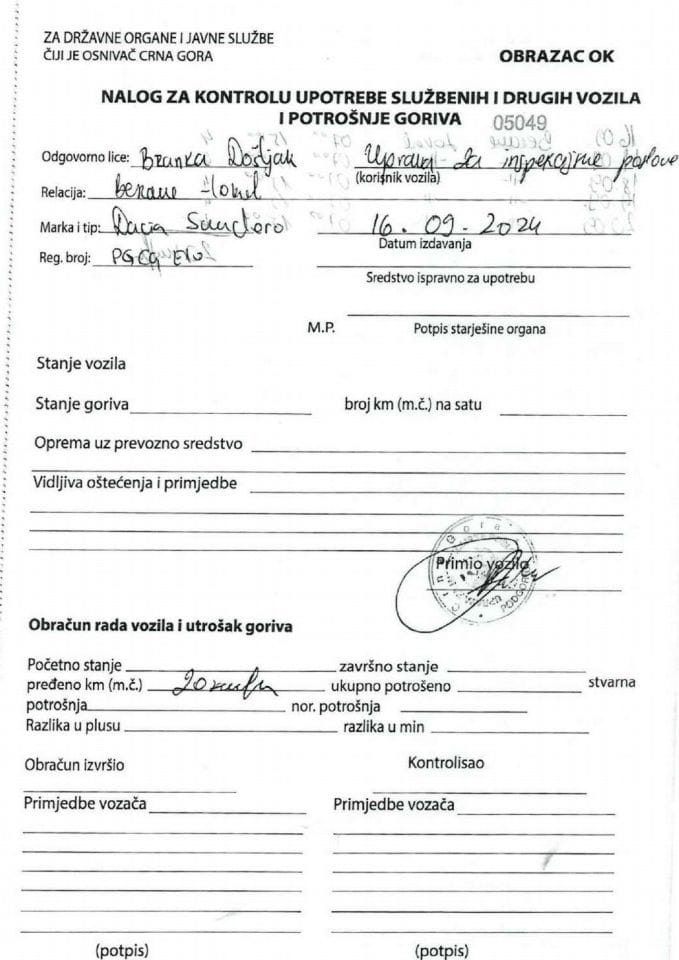 ZA DRŽAVNE ORGANE I JAVNE SLUŽBE
ČIJI JE OSNIVAČ CRNA GORA
OBRAZAC OK
NALOG ZA KONTROLU UPOTREBE SLUŽBENIH I DRUGIH VOZILA
I POTROŠNJE GORIVA 05049
Odgovorno lice: Branka Uprava za inspekcijske poslove
(korisnik vozila)
Relacija: Berane
Marka i tip: Dacia Sandero 16. 09. 2024
Datum izdavanja
Reg. broj: PGCG
Sredstvo ispravno za upotrebu
M.P. Potpis starješine organa
Stanje vozila
Stanje goriva broj km (m.č.) na satu
Oprema uz prevozno sredstvo
Vidljiva oštećenja i primjedbe
Primio vozilo
Crna Gora
PODGORICA
Obračun rada vozila i utrošak goriva
Početno stanje završno stanje
pređeno km (m.č.) ukupno potrošeno stvarna
potrošnja nor. potrošnja
Razlika u plusu razlika u min
Obračun izvršio Kontrolisao
Primjedbe vozača Primjedbe vozača
(potpis) (potpis)